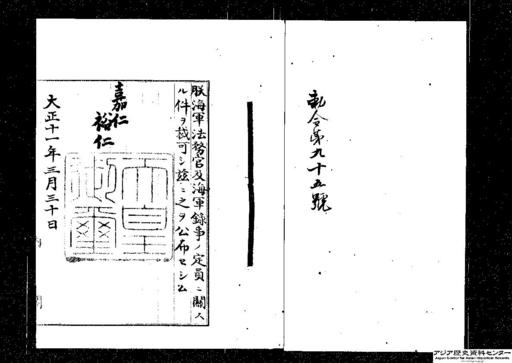 勅令第九十五號
朕海軍法務官及海軍錄事ノ定員ニ關ス
ル件ヲ裁可シ茲ニ之ヲ公布セシム
嘉仁
裕仁
大正十一年三月三十日
天皇御璽
内閣
アジア歴史資料センター
Japan Center for Asian Historical Records